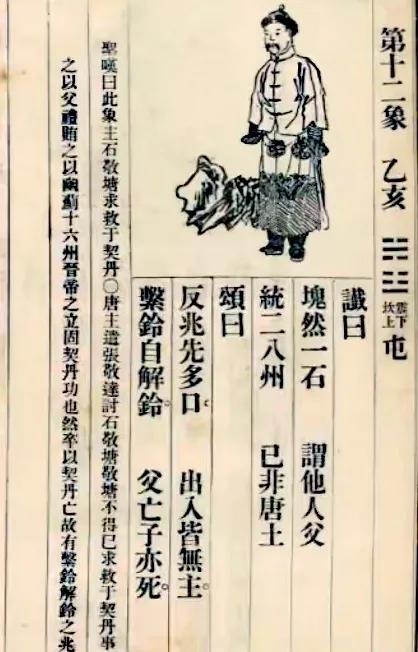 第十二象 乙亥 ䷂ 震下坎上 屯
讖曰
塊然一石 謂他人父
統二八州 已非唐土
頌曰
反兆先多口。 出入皆無主。
繫鈴自解鈴。 父亡子亦死。
聖嘆曰此象主石敬塘求救于契丹〇唐主遣張敬達討石敬塘敬塘不得已求救于契丹事
之以父禮賄之以幽薊十六州晉帝之立固契丹功也然卒以契丹亡故有繫鈴解鈴之兆